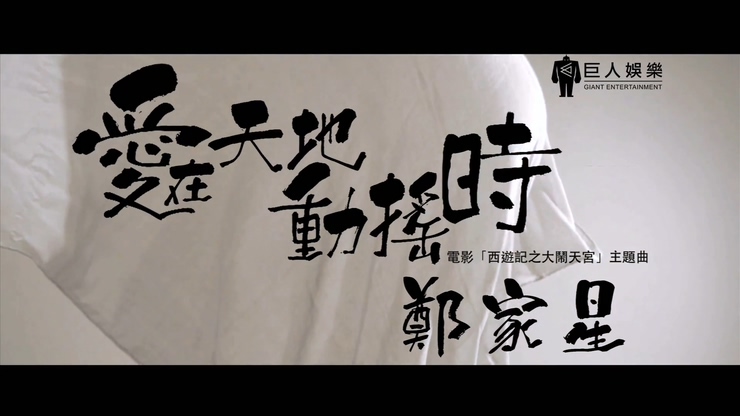 巨人娛樂
GIANT ENTERTAINMENT
愛在天地
動搖時
電影「西遊記之大鬧天宮」主題曲
鄭家星